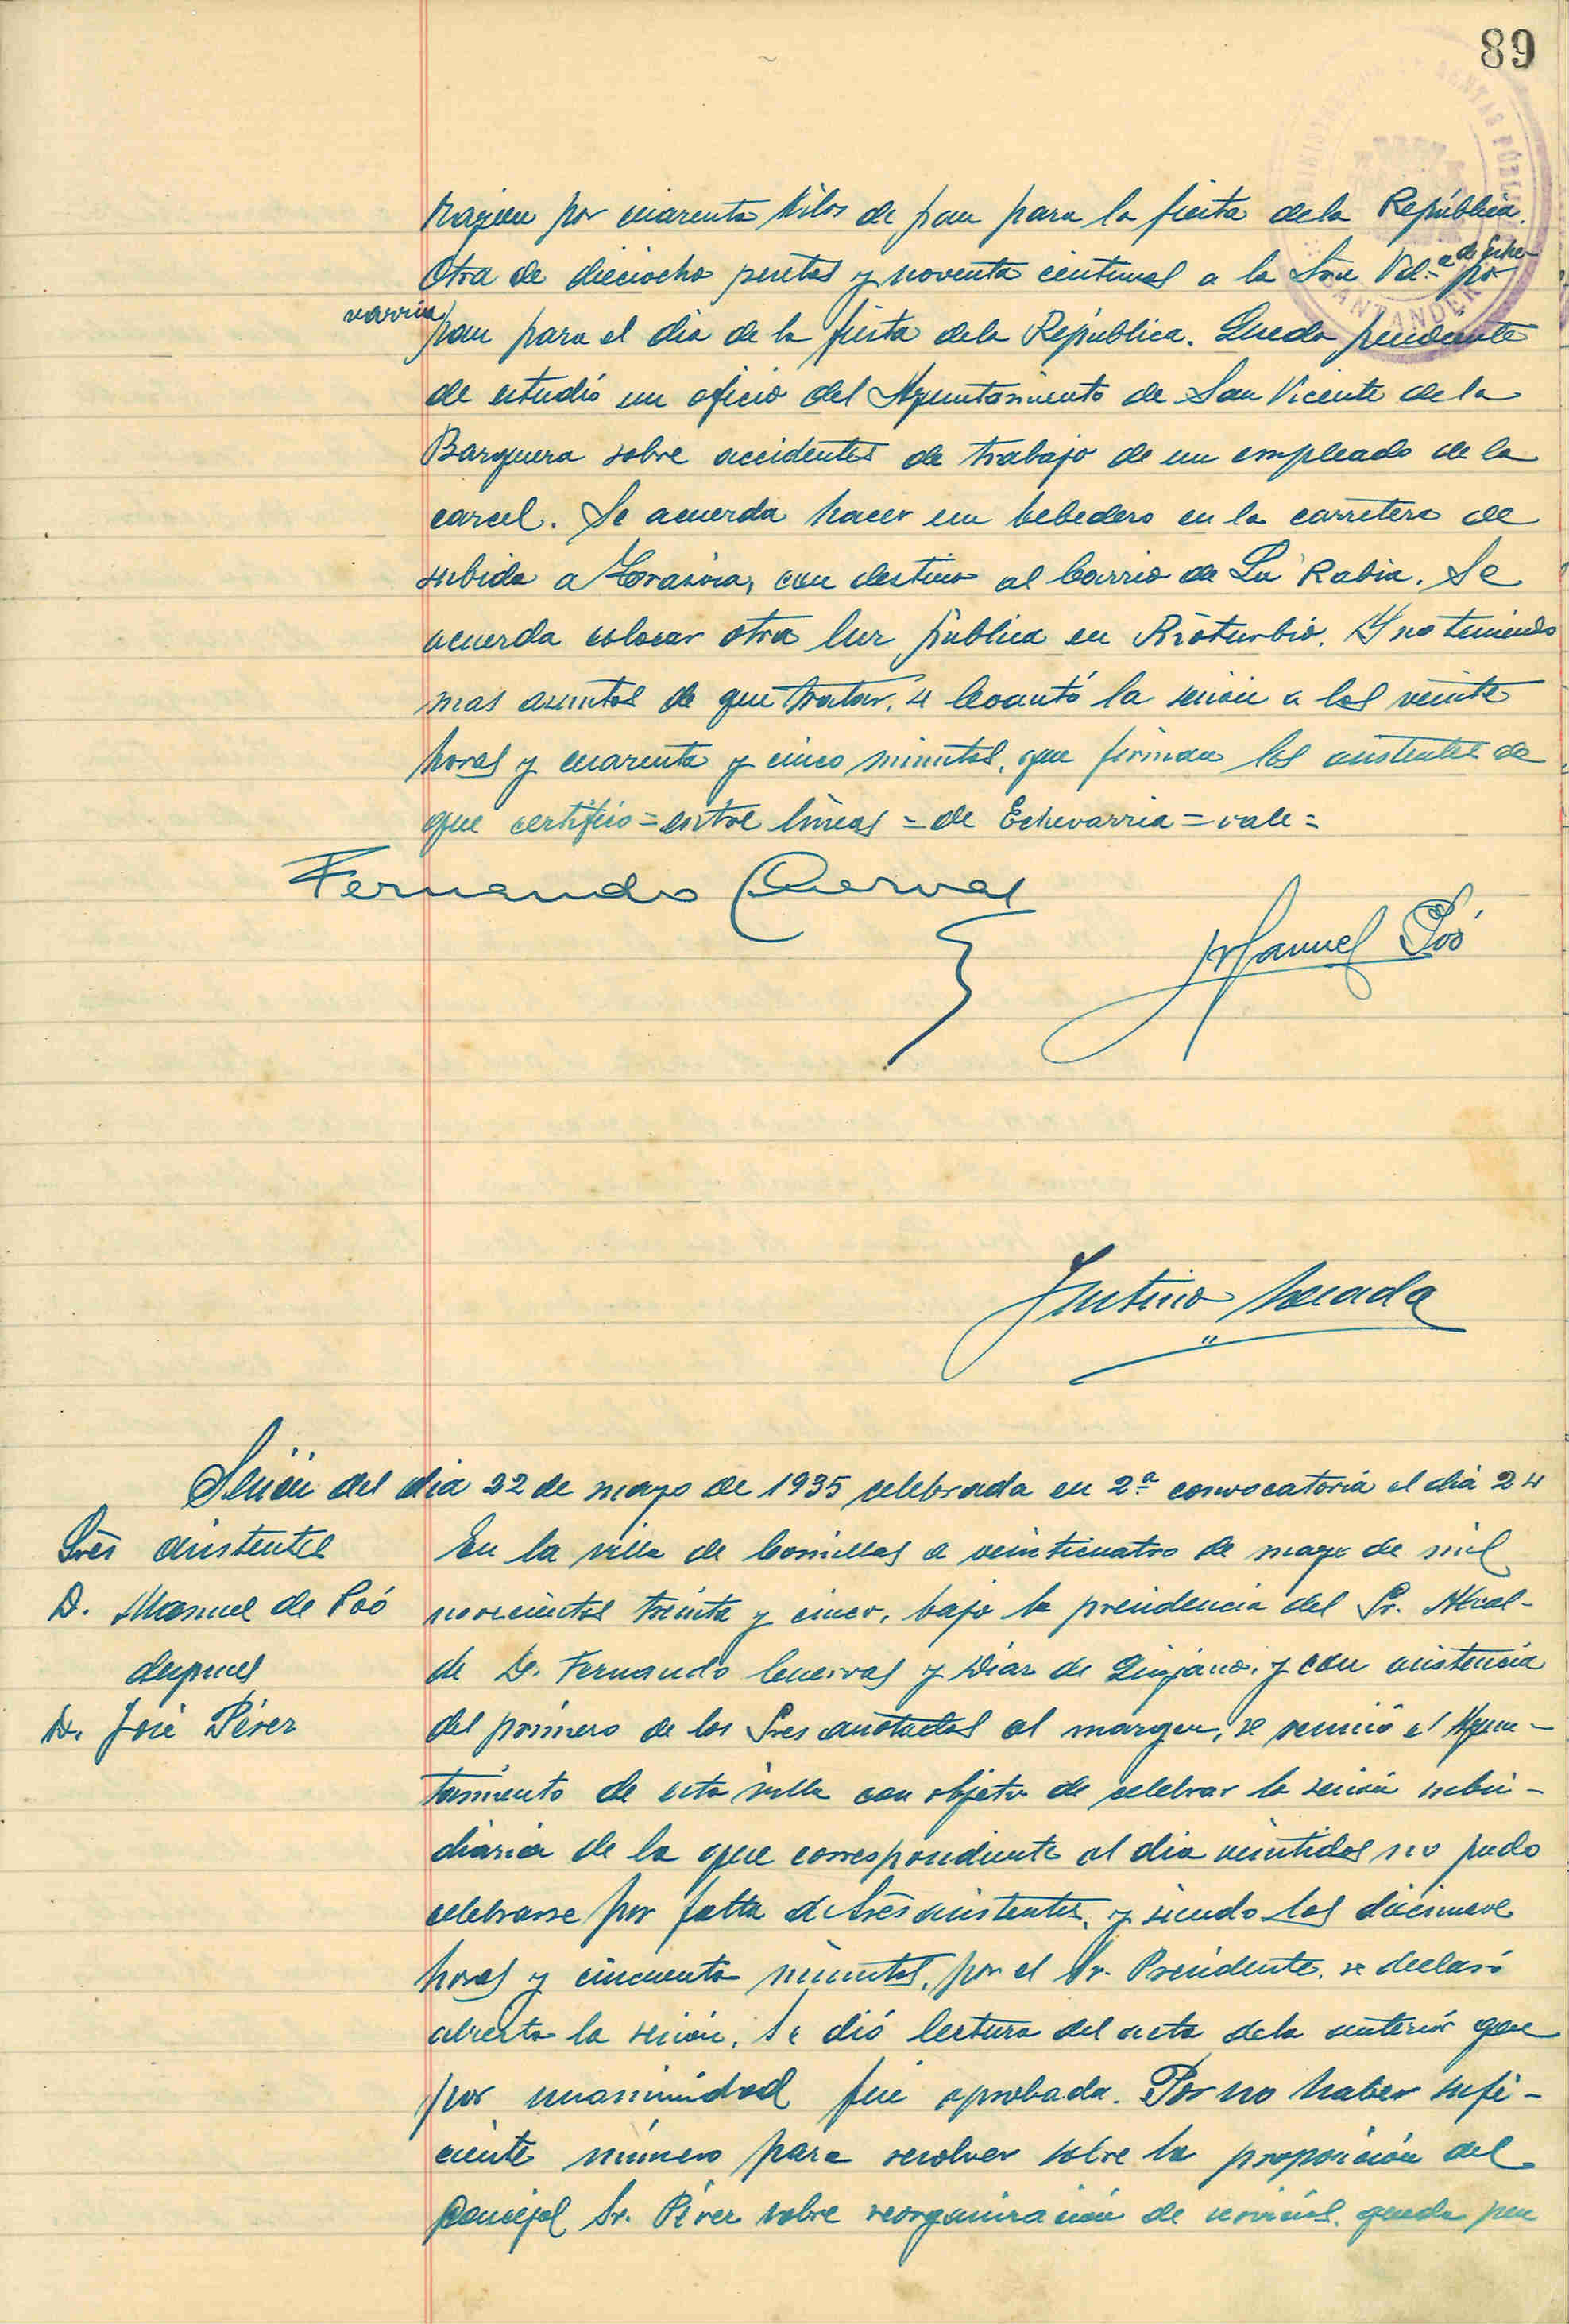 89
por cuarenta kilos de pan para la fiesta de la República.
Otra de dieciocho pesetas y noventa centimos a la Sra Vd.ª de Eche- por
varria
pan para el dia de la fiesta de la República. Queda pendiente
de estudio un oficio del Ayuntamiento de San Vicente de la
Barquera sobre accidentes de trabajo de un empleado de la
carcel. Se acuerda hacer un bebedero en la carretera de
subida a con destino al barrio de La Rabia. Se
acuerda colocar otra luz pública en Rioturbio. Y no teniendo
mas asuntos de que tratar, se levantó la sesión a las veinte
horas y cuarenta y cinco minutos, que firman los asistentes de
que certifico = entre lineas = de Echevarria = vale =
Fernando Cuervas
Manuel Póo
Justino
Sesión del dia 22 de mayo de 1935 celebrada en 2ª convocatoria el dia 24
Sres asistentes
D. Manuel de Poó
despues
D. José Pérez
En la villa de Comillas a veinticuatro de mayo de mil
novecientos treinta y cinco, bajo la presidencia del Sr. Alcal-
de D. Fernando Cuervas y Diaz de Quijano, y con asistencia
del primero de los Sres anotados al margen, se reunió el Ayun-
tamiento de esta villa con objeto de celebrar la sesión subsi-
diaria de la que correspondiente al dia veintidos no pudo
celebrarse por falta de Sres asistentes, y siendo las diecinueve
horas y cincuenta minutos, por el Sr. Presidente, se declaró
abierta la sesión. Se dió lectura del acta de la anterior que
por unanimidad fué aprobada. Por no haber sufi-
ciente número para resolver sobre la proposición del
Concejal Sr. Pérez sobre reorganización de servicios, queda pen